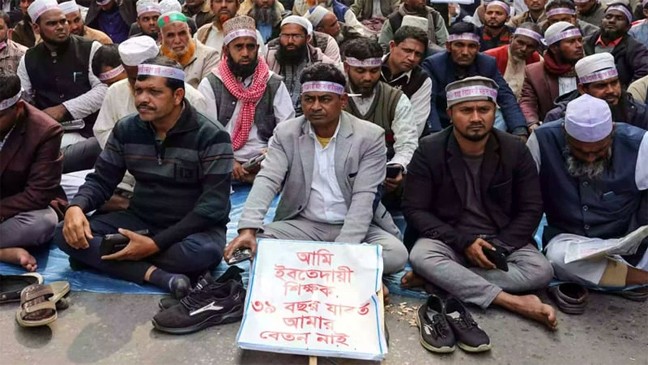 আমি
ইবতেদায়ী
শিক্ষক
৩৯ বছর যাবৎ
আমার
বেতন নাই